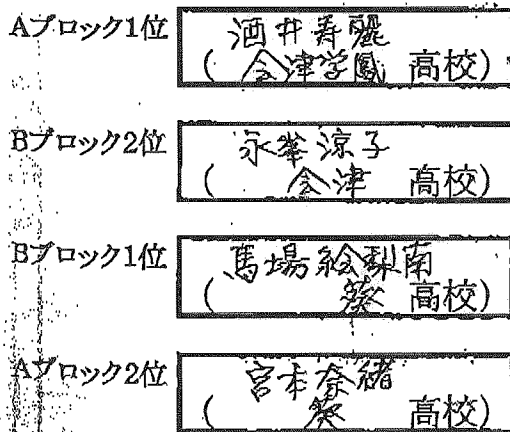 Aブロック1位
酒井寿麗
( 会津学鳳 高校)
Bブロック2位
永峯涼子
( 会津 高校)
Bブロック1位
馬場絵梨南
( 葵 高校)
Aブロック2位
宮本奈緒
( 葵 高校)